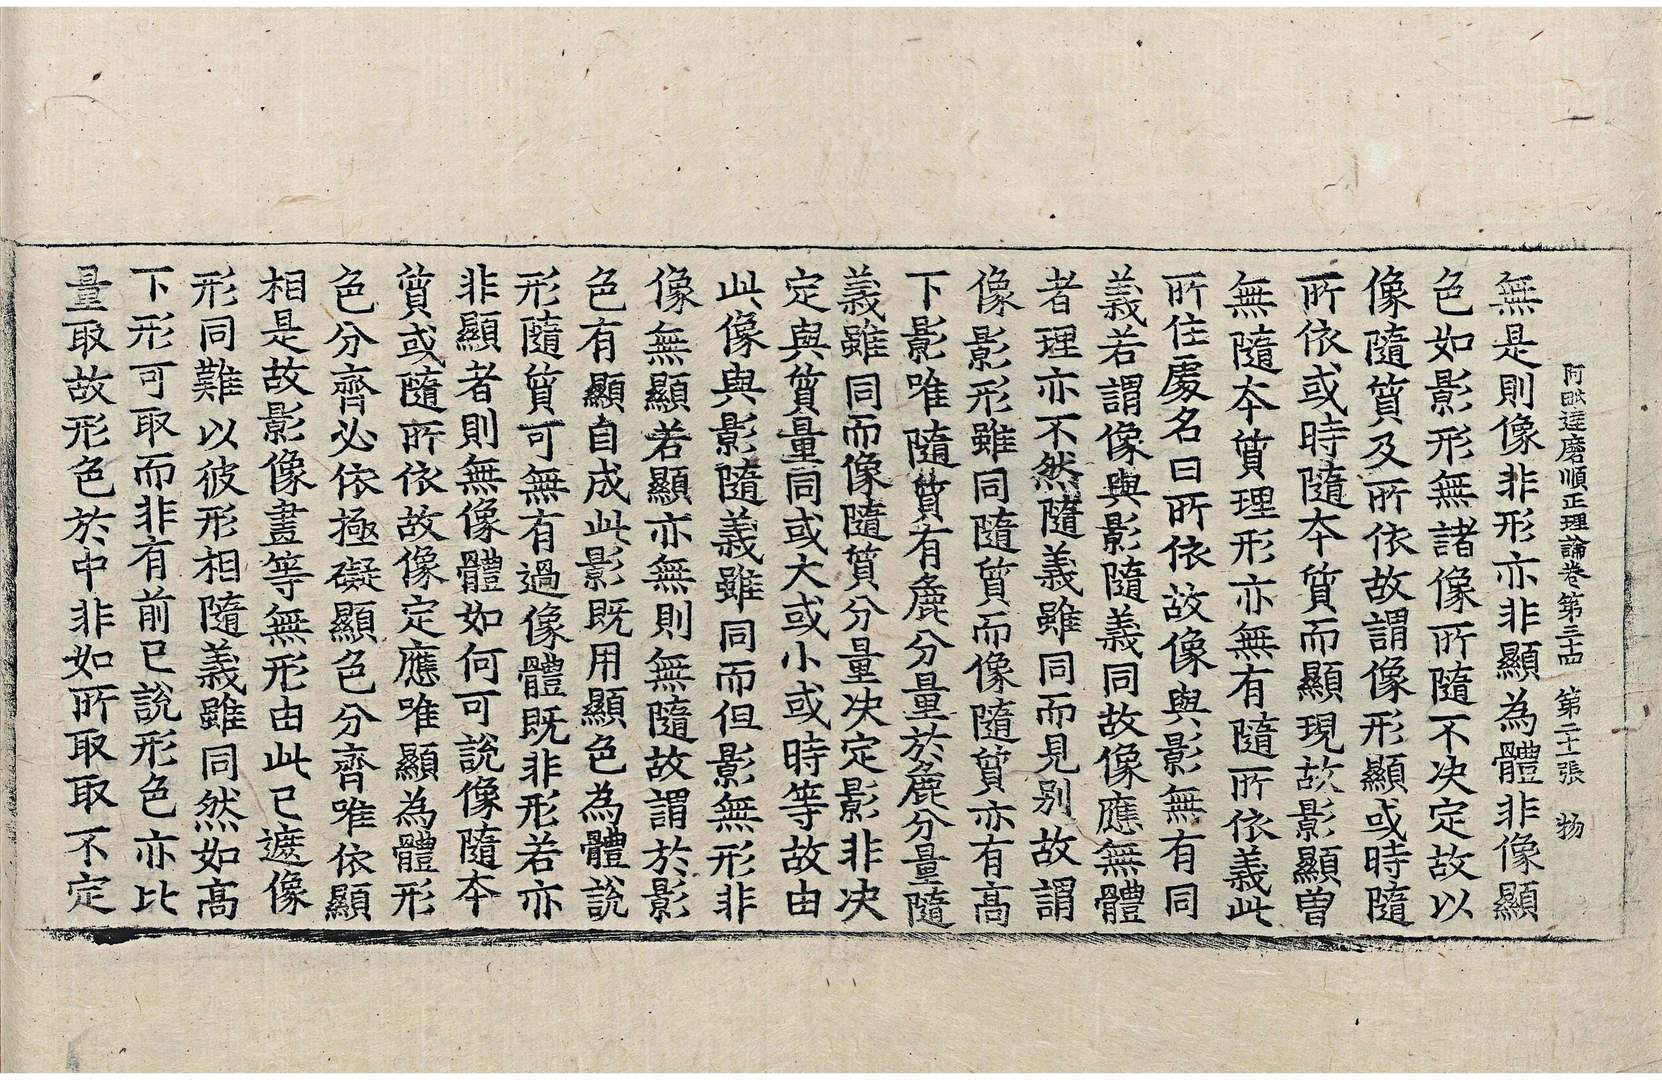 阿毗達磨順正理論卷第三十四 第二十張 物
無是則像非形亦非顯為體非像顯
色如影形無諸像所隨不决定故以
像隨質及所依故謂像形顯或時隨
所依或時隨本質而顯現故影顯曾
無隨本質理形亦無有隨所依義此
所住處名曰所依故像與影無有同
義若謂像與影隨義同故像應無體
者理亦不然隨義雖同而見別故謂
像影形雖同隨質而像隨質亦有高
下影唯隨質有麁分量於麁分量隨
義雖同而像隨質分量决定影非决
定與質量同或大或小或時等故由
此像與影隨義雖同而但影無形非
像無顯若顯亦無則無隨故謂於影
色有顯自成此影既用顯色為體說
形隨質可無有過像體既非形若亦
非顯者則無像體如何可說像隨本
質或隨所依故像定應唯顯為體形
色分齊必依極礙顯色分齊唯依顯
相是故影像晝等無形由此已遮像
形同難以彼形相隨義雖同然如高
下形可取而非有前已說形色亦比
量取故形色於中非如所取取不定